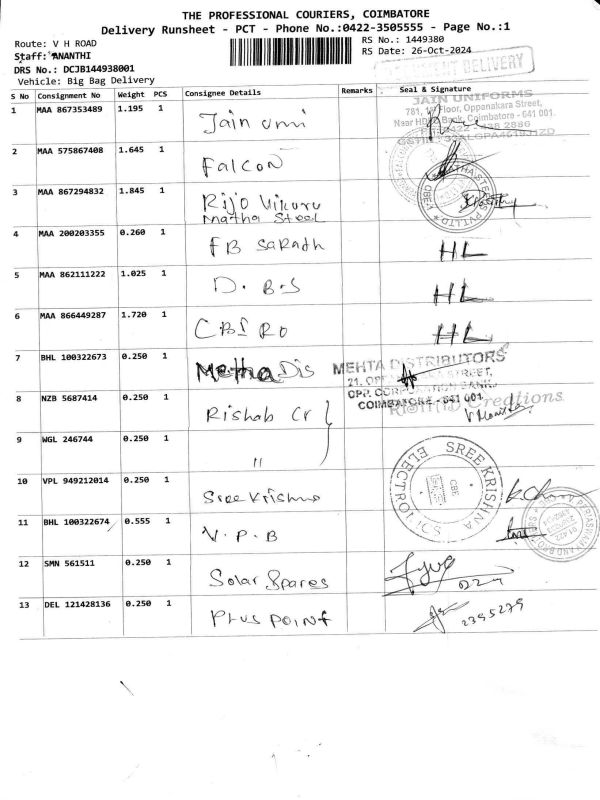 THE PROFESSIONAL COURIERS, COIMBATORE
Delivery Runsheet - PCT - Phone No.:0422-3505555 - Page No.:1
Route: V H ROAD
RS No.: 1449380
Staff: ANANTHI
RS Date: 26-Oct-2024
DRS No.: DCJB144938001
DELIVERY
Vehicle: Big Bag Delivery
S No Consignment No Weight PCS Consignee Details Remarks Seal & Signature
1 MAA 867353489 1.195 1 Jain uni
JAIN UNIFORMS
781, Floor, Oppanakara Street,
Near HDFC Bank, Coimbatore - 641 001.
2 MAA 575867408 1.645 1 Falcon
3 MAA 867294832 1.845 1 Rijo
Matha Steel
4 MAA 200203355 0.260 1 FB Sarath HL
5 MAA 862111222 1.025 1 D. B-S HL
6 MAA 866449287 1.720 1 CBI RO HL
7 BHL 100322673 0.250 1 Metha Dis
MEHTA DISTRIBUTORS
STREET,
OPP. CORPORATION BANK,
COIMBATORE - 641 001.
8 NZB 5687414 0.250 1 Rishab Cr
Creations
9 WGL 246744 0.250 1 "
10 VPL 949212014 0.250 1 Sree Krishna
SREE KRISHNA ELECTRONICS
CBE
11 BHL 100322674 0.555 1 V. P. B
12 SMN 561511 0.250 1 Solar Spares
13 DEL 121428136 0.250 1 Plus Point
2395279